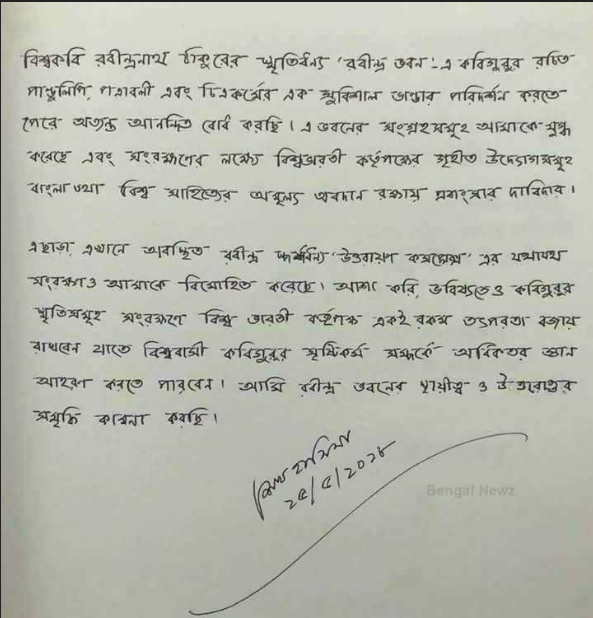 বিশ্বকবি রবীন্দ্রনাথ ঠাকুরের স্মৃতিধন্য 'রবীন্দ্র ভবন'-এ কবিগুরুর রচিত
পান্ডুলিপি, পত্রাবলী এবং চিত্রকর্মের এক সুবিশাল ভান্ডার পরিদর্শন করতে
পেরে অত্যন্ত আনন্দিত বোধ করছি। এ ভবনের সংগ্রহসমূহ আমাকে মুগ্ধ
করেছে এবং সংরক্ষণের লক্ষ্যে বিশ্বভারতী কর্তৃপক্ষের গৃহীত উদ্যোগসমূহ
বাংলা তথা বিশ্ব সাহিত্যের অমূল্য অবদান রক্ষায় প্রশংসার দাবিদার।
এছাড়া, এখানে অবস্থিত রবীন্দ্র স্পর্শধন্য 'উত্তরায়ণ কমপ্লেক্স' এর যথাযথ
সংরক্ষণও আমাকে বিমোহিত করেছে। আশা করি, ভবিষ্যতেও কবিগুরুর
স্মৃতিসমূহ সংরক্ষণে বিশ্ব ভারতী কর্তৃপক্ষ একই রকম তৎপরতা বজায়
রাখবেন যাতে বিশ্ববাসী কবিগুরুর সৃষ্টিকর্ম সম্পর্কে অধিকতর জ্ঞান
আহরণ করতে পারবেন। আমি রবীন্দ্র ভবনের স্থায়ীত্ব ও উত্তরোত্তর
সমৃদ্ধি কামনা করছি।
শেখ হাসিনা
২৫/৫/২০১৮
Bengal Newz